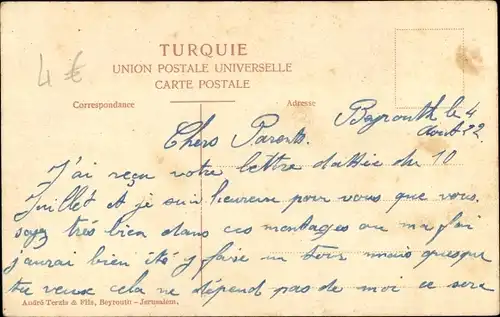 TURQUIE
UNION POSTALE UNIVERSELLE
CARTE POSTALE
Correspondance
Adresse
4 €
Beyrouth le 4
Aout 22
Chers Parents.
J'ai reçu votre lettre dattée du 10
Juillet et je suis heureux pour vous que vous
soyez très bien dans ces montages ou ma foi
j'aurai bien été y faire un tour mais puesque
tu veux cela ne dépend pas de moi ce sera
André Terzis & Fils, Beyrouth - Jerusalem,